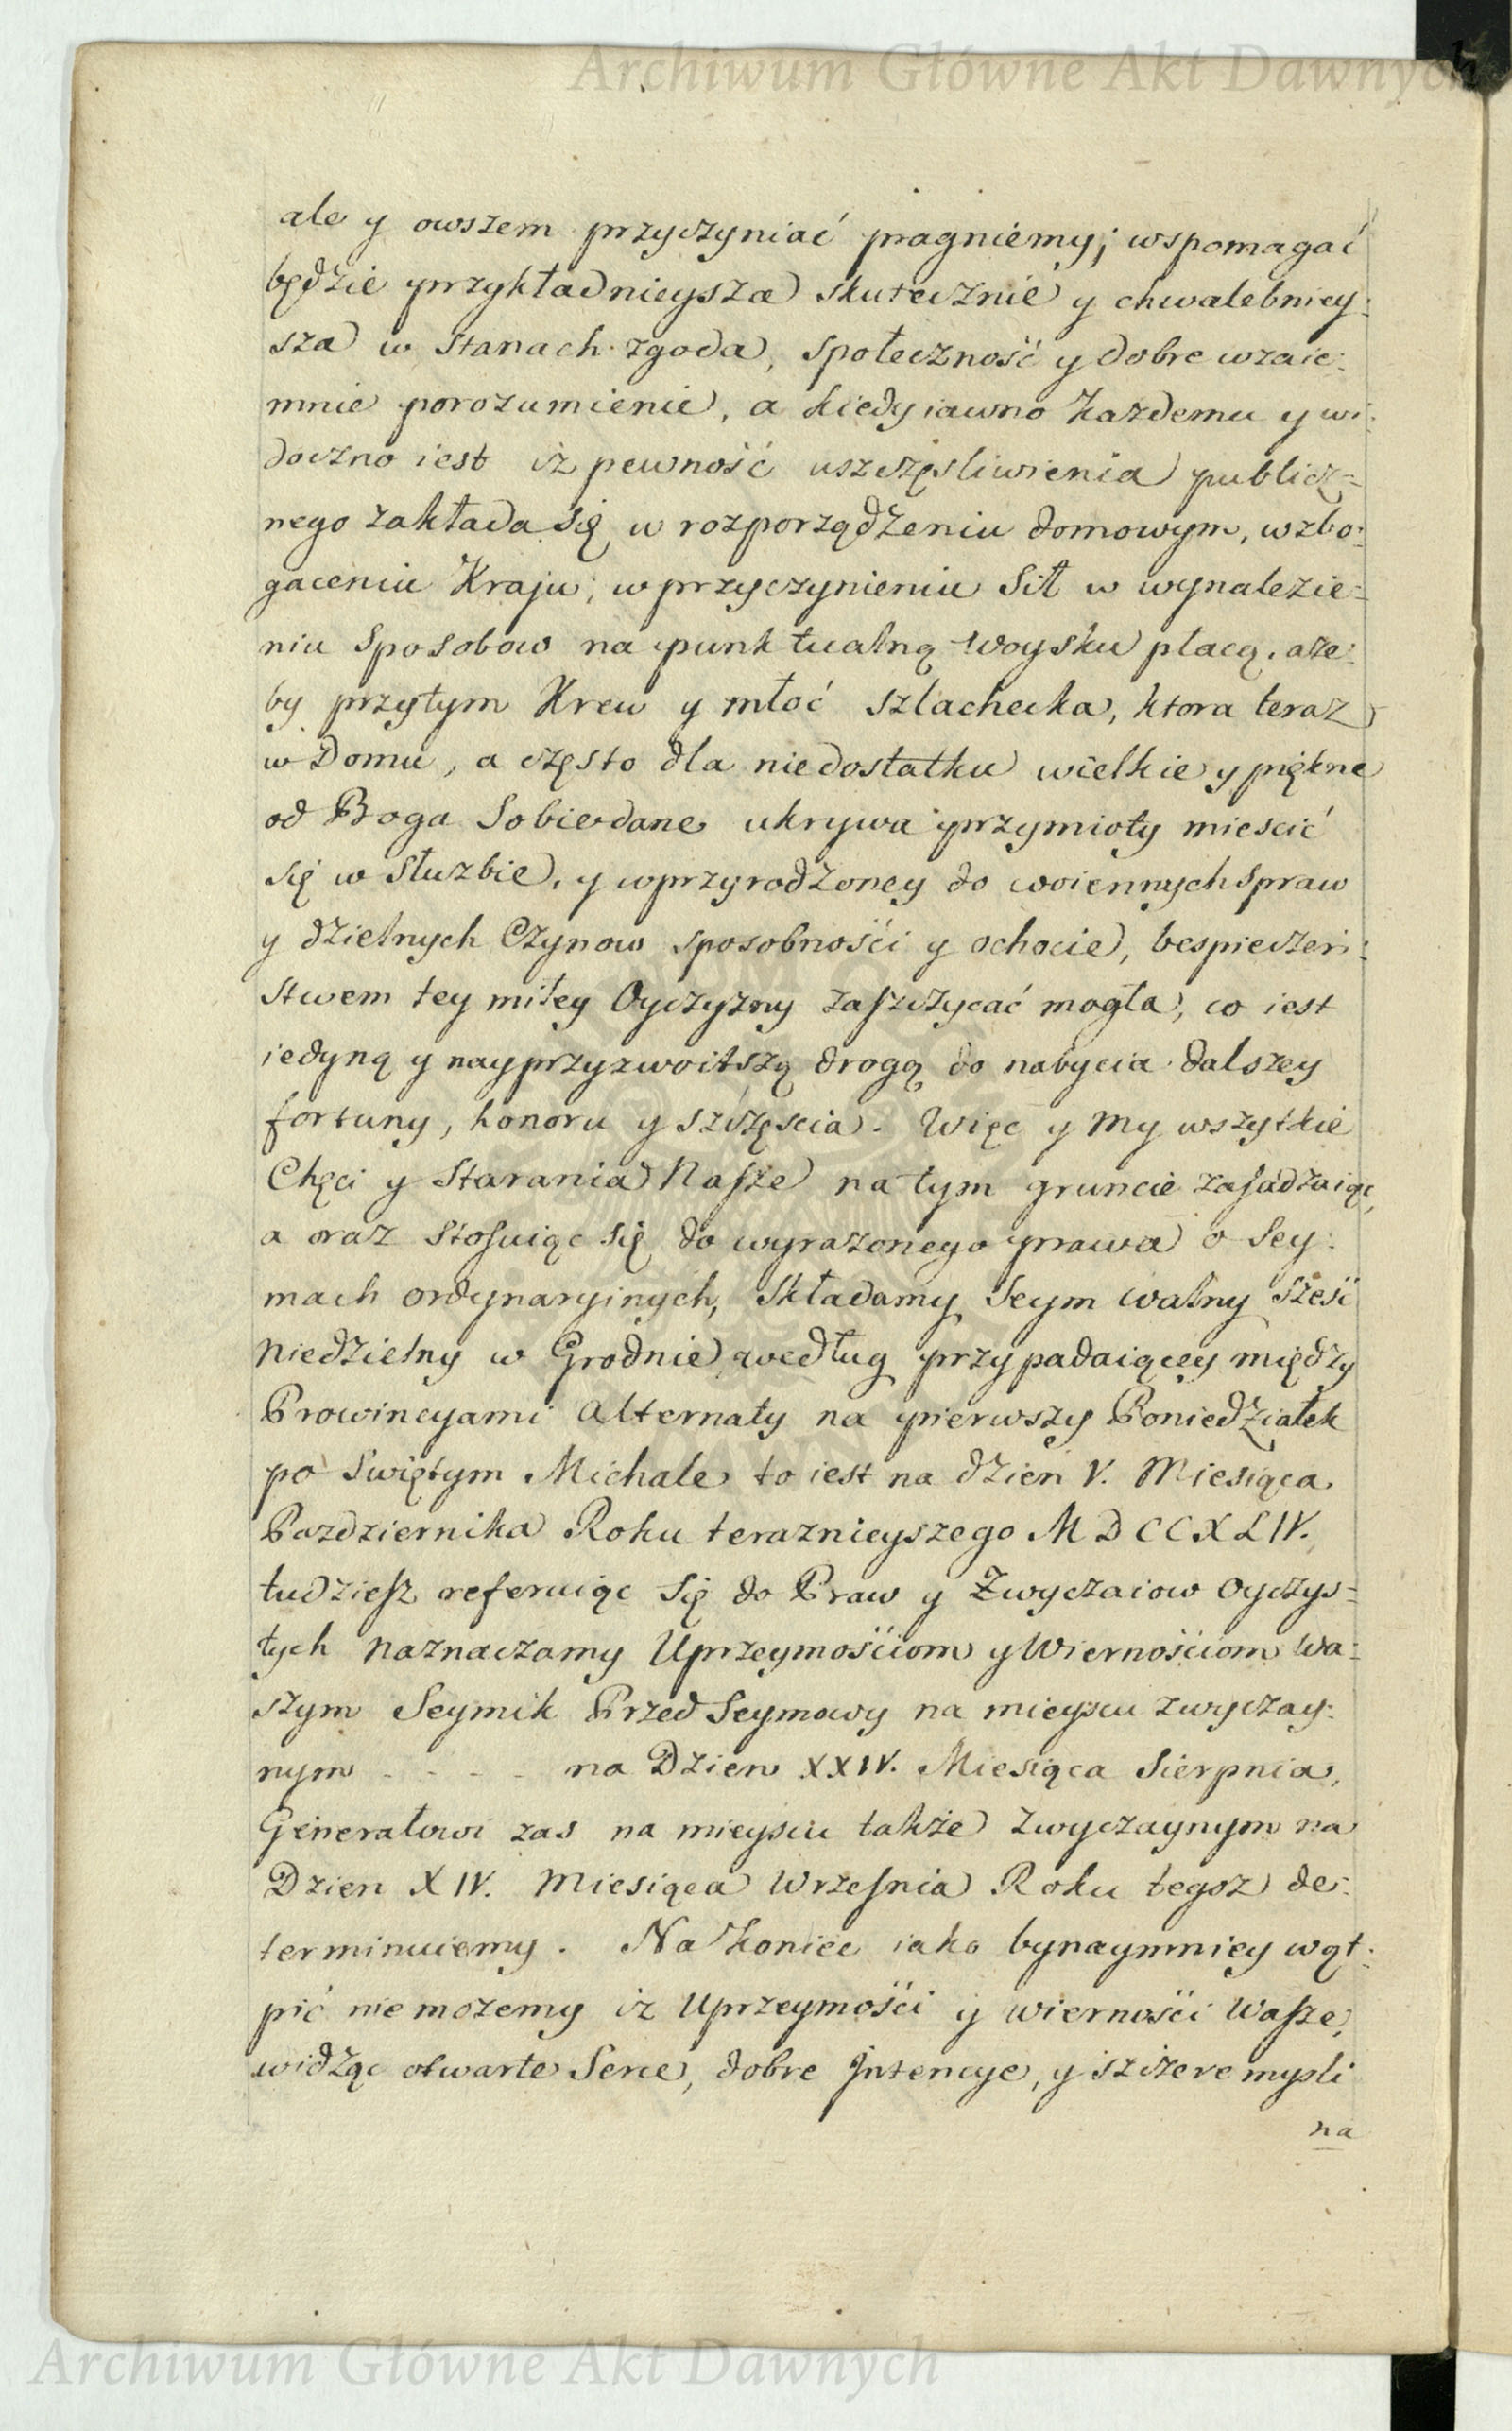 Archiwum Główne Akt Dawnych
ale y owszem przyczyniać pragniemy; wspomagać
będzie przykładnieysza skutecznie y chwalebniey:
sza w Stanach zgoda, społeczność y dobre wzaie:
mnie porozumienie, a kiedy iawno każdemu y wi:
doczno iest iż pewność uszczęsliwienia publicz=
nego zakłada się w rozporządzeniu domowym, wzbo:
gaceniu Kraju, w przyczynieniu Sił w wynalezie=
niu Sposobow na punktualną Woysku płacą, aże:
by przytym Krew y młoć szlachecka, ktora teraz
w Domu, a często dla niedostatku wielkie y piękne
od Boga Sobie dane ukrywa przymioty miescić
się w Służbie, y w przyrodzoney do woiennych spraw
y dzielnych Czynow sposobnośći y ochocie, bespieczeń:
stwem tey miłey Oyczyzny zaszczycać mogła, co iest
iedyną y nayprzyzwoitszą drogą do nabycia dalszey
fortuny, honoru y szczęscia. Więc y My wszytkie
Chęci y Starania Nasze na tym gruncie zasadzaiąc,
a oraz Stosuiąc się do wyrazonego prawa o Sey:
mach ordynaryinych, Składamy Seym walny sześć
Niedzielny w Grodnie według przypadaiącey między
Prowincyami Alternaty na pierwszy Poniedziałek
po Swiętym Michale to iest na dzien V. Miesiąca
Pazdziernika Roku teraznieyszego MDCCXLIV.
tudziesz referuiąc Się do Praw y Zwyczaiow Oyczys=
tych naznaczamy Uprzeymośćiom y Wiernośćiom Wa:
szym Seymik Przed Seymowy na mieyscu zwyczay:
nym - - - - na Dzien XXIV. Miesiąca Sierpnia,
Generałowi zas na mieyscu także zwyczaynym na
Dzien XIV. Miesiąca Września Roku tegoż de:
terminuiemy. Na koniec iako bynaymniey wąt:
pić nie możemy iż Uprzeymośći y wiernośći Wasze,
widząc otwarte Serce, dobre Intencye, y szczere mysli
na
Archiwum Główne Akt Dawnych